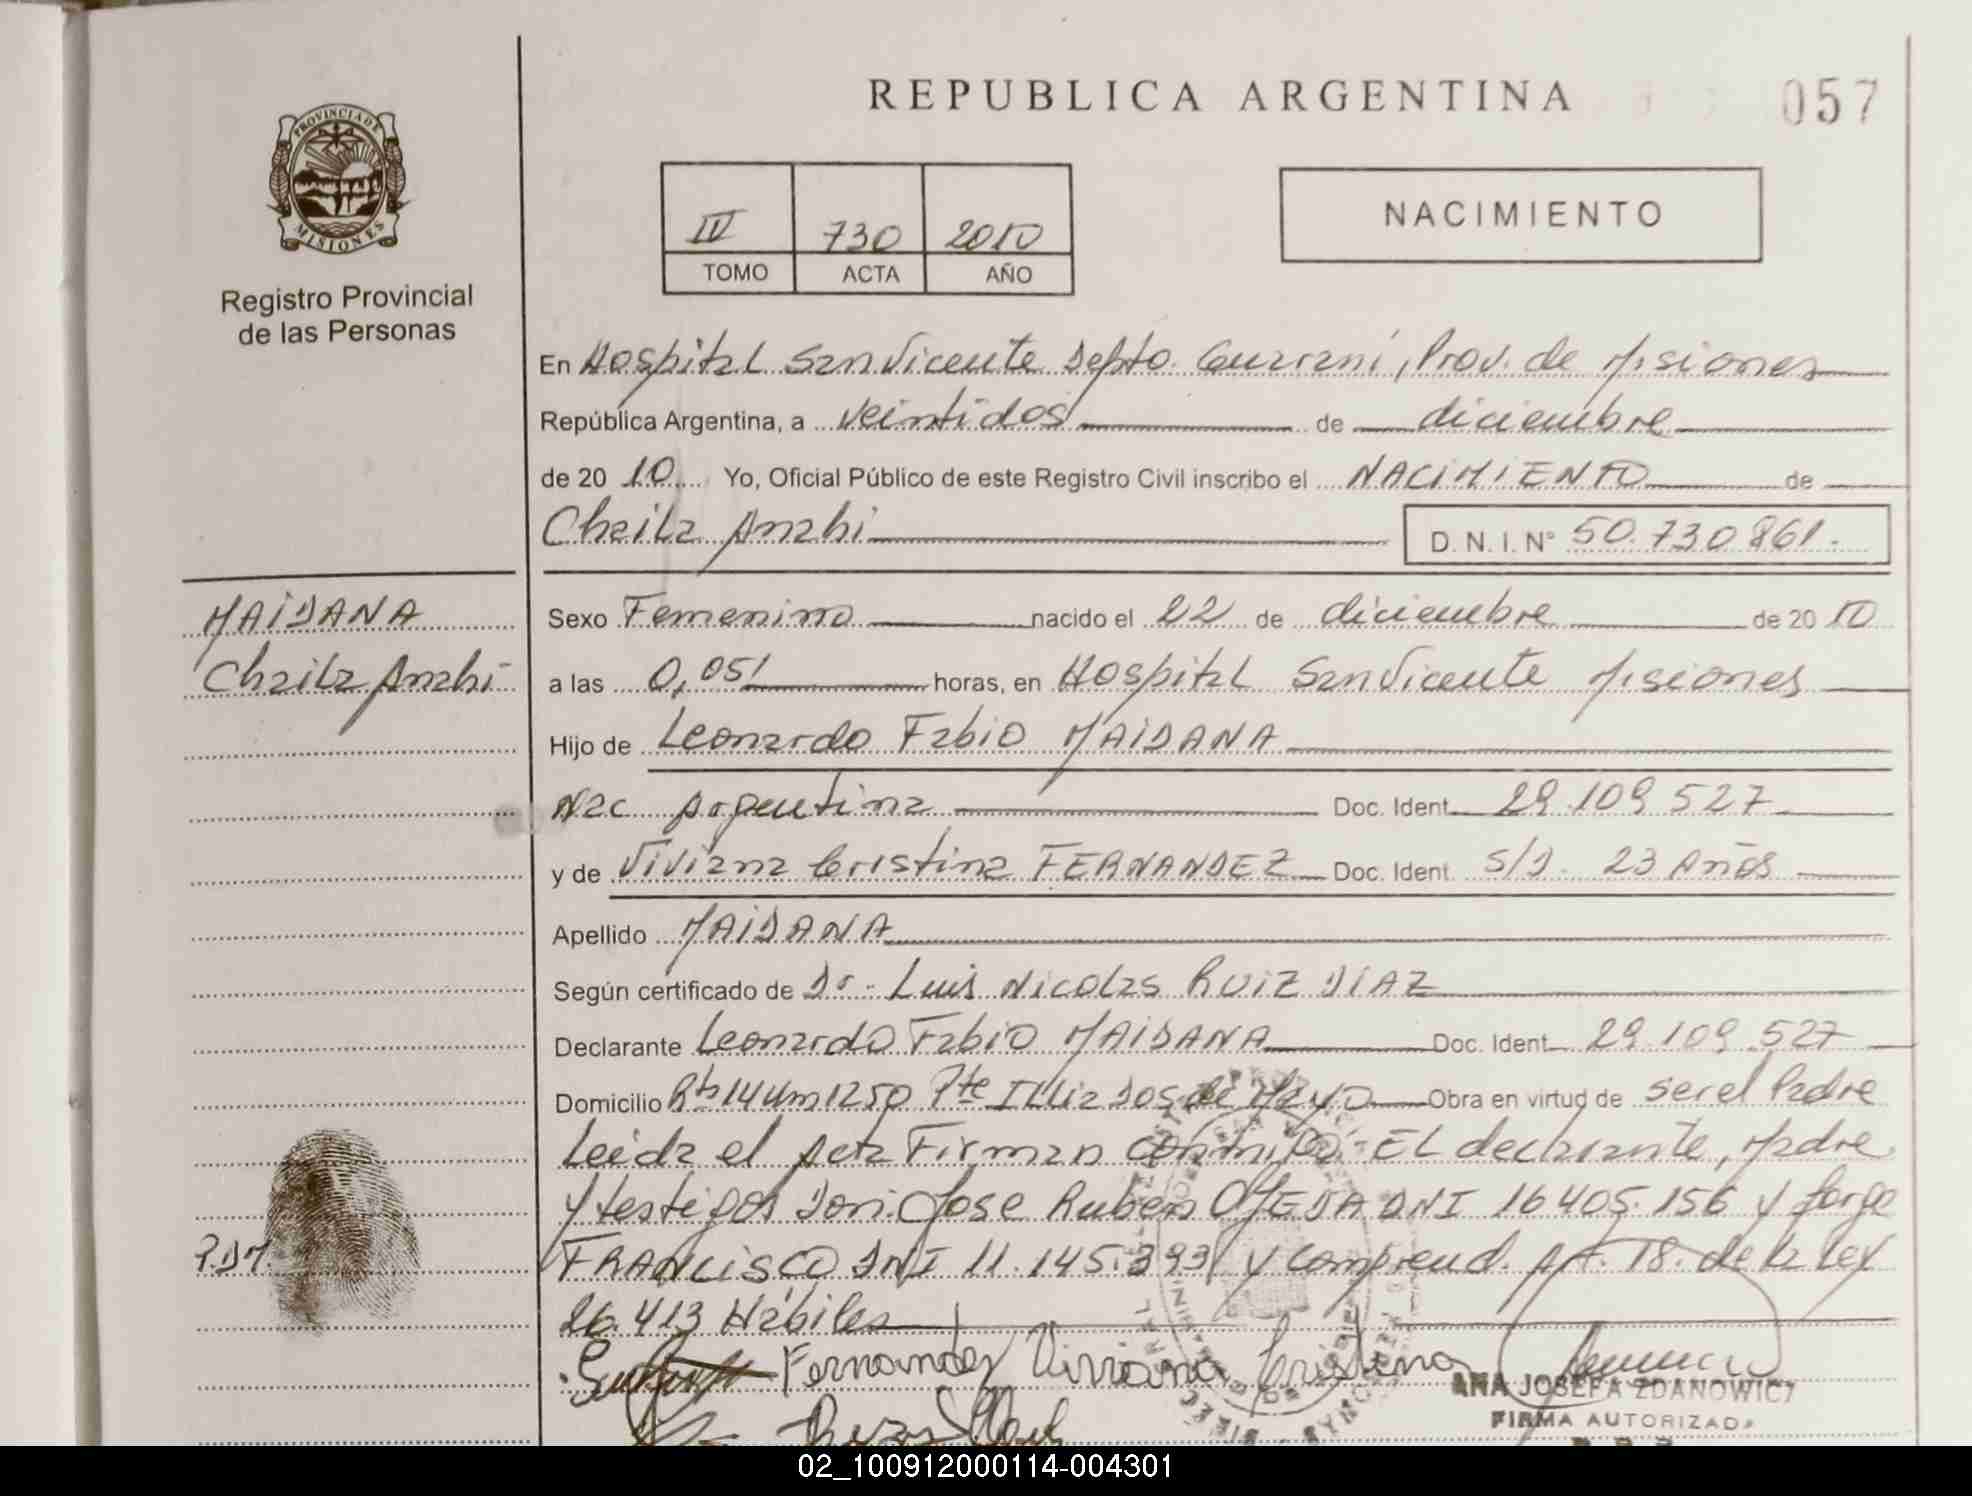 REPUBLICA ARGENTINA
057
PROVINCIA DE
MISIONES
Registro Provincial
de las Personas
IV 730 2010
TOMO ACTA AÑO
NACIMIENTO
En Hospital San Vicente Depto. Guaraní, Prov. de Misiones
República Argentina, a veintidos de diciembre
de 20 10 Yo, Oficial Público de este Registro Civil inscribo el NACIMIENTO de
Cheila Anahi
D. N. I. N° 50.730861.
MAIDANA
Cheila Anahi
Sexo Femenino nacido el 22 de diciembre de 20 10
a las 0,05' horas, en Hospital San Vicente Misiones
Hijo de Leonardo Fabio MAIDANA
Nac Argentina Doc. Ident. 29.109.527
y de Viviana Cristina FERNANDEZ Doc. Ident. S/D. 23 Años
Apellido MAIDANA
Según certificado de Dr. Luis Nicolas RUIZ DIAZ
Declarante Leonardo Fabio MAIDANA Doc. Ident. 29.109.527
Domicilio Rta 14 Km 1250 Pte Illia Dos de Mayo Obra en virtud de ser el Padre
Leida el Acta Firman conmigo: El declarante, Madre
y testigos Don Jose Ruben OJEDA DNI 16 405.156 y Jorge
FRANCISCO DNI 11.145.393 y comprend. Art. 18. de la Ley
26.413 Hábiles
P.D.M.
Fernandez Viviana Cristina
ANA JOSEFA ZDANOWICZ
FIRMA AUTORIZADA
02_100912000114-004301